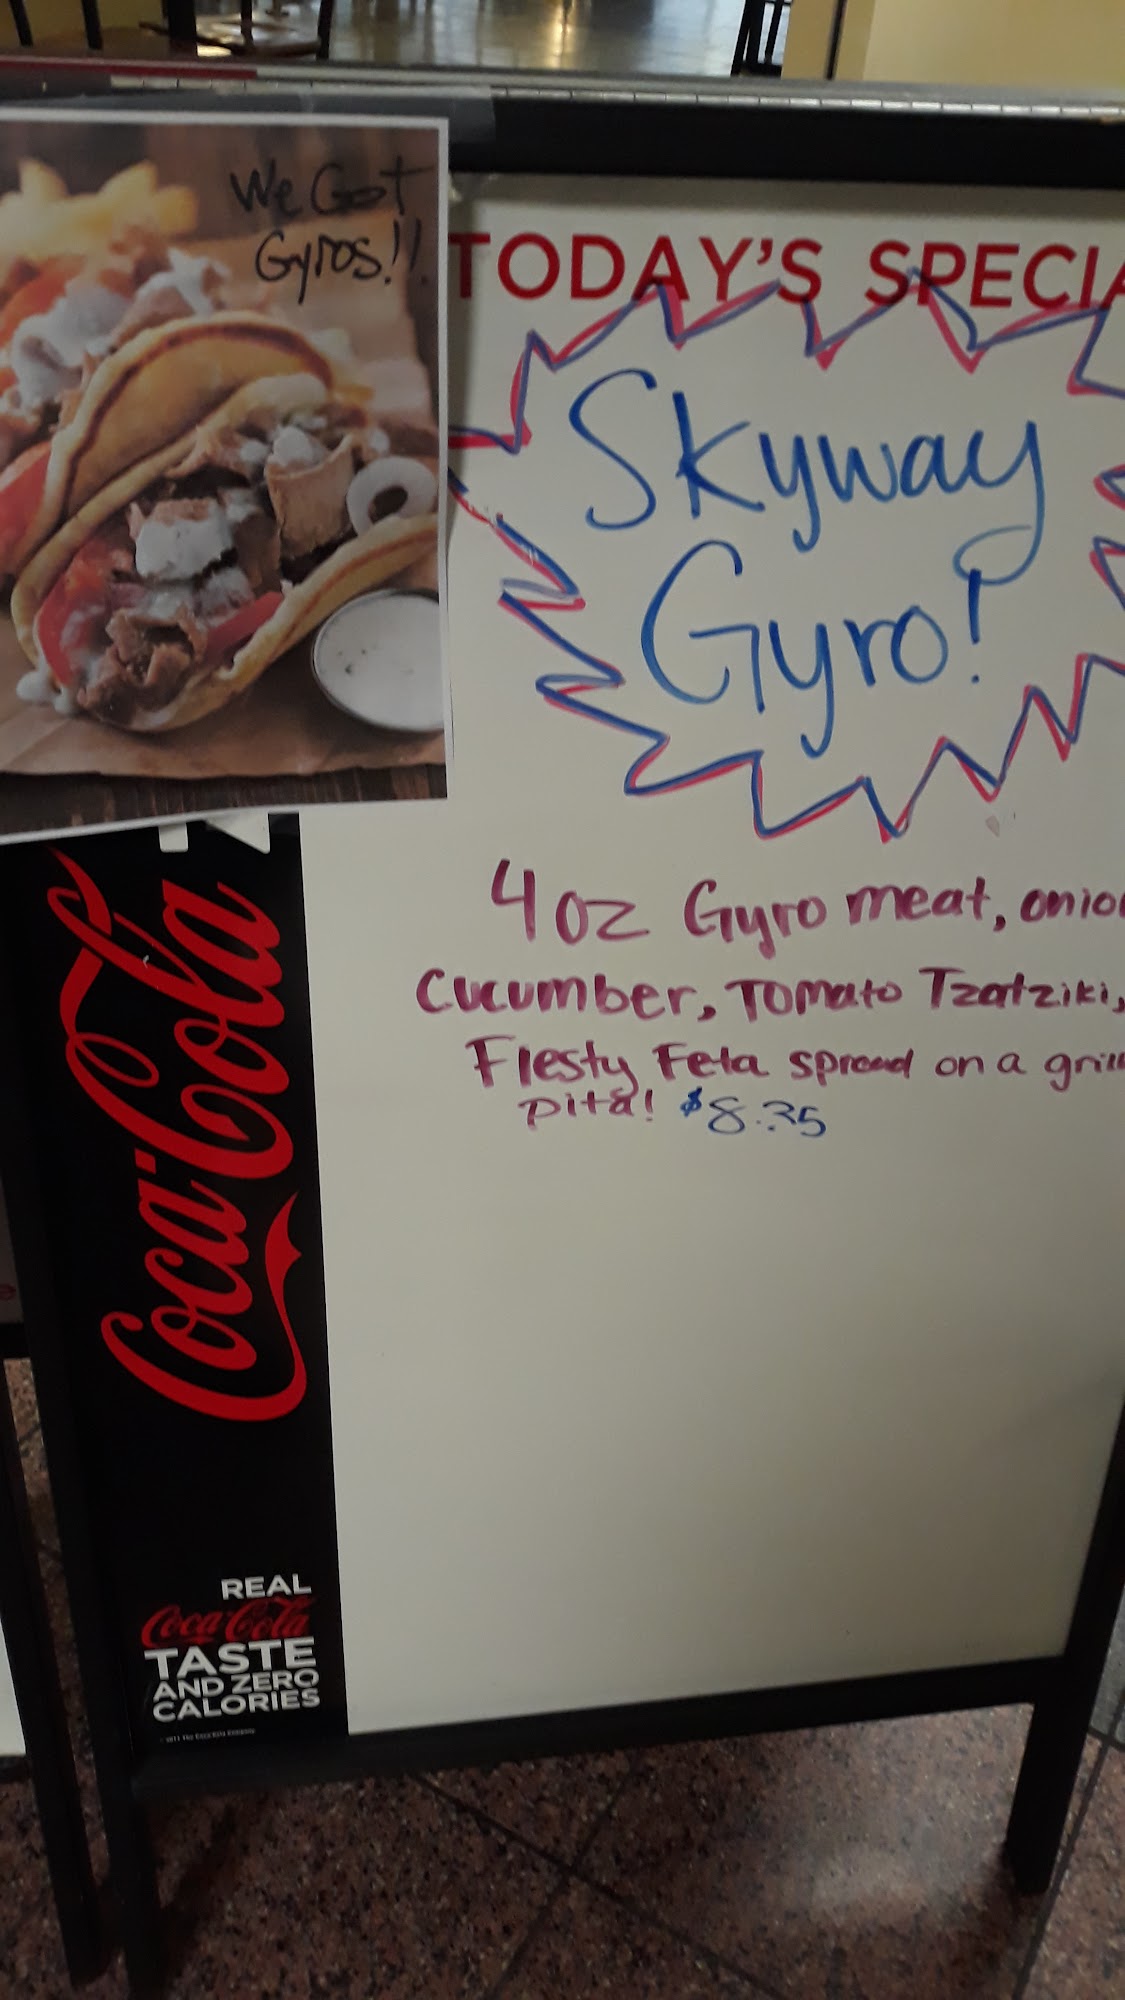 We Got
Gyros!!
TODAY'S SPECIA
Skyway
Gyro!
4 oz Gyro meat, onio
Cucumber, Tomato Tzatziki,
Fiesty Feta spread on a grill
pita! $8.35
Coca-Cola
REAL
Coca-Cola
TASTE
AND ZERO
CALORIES